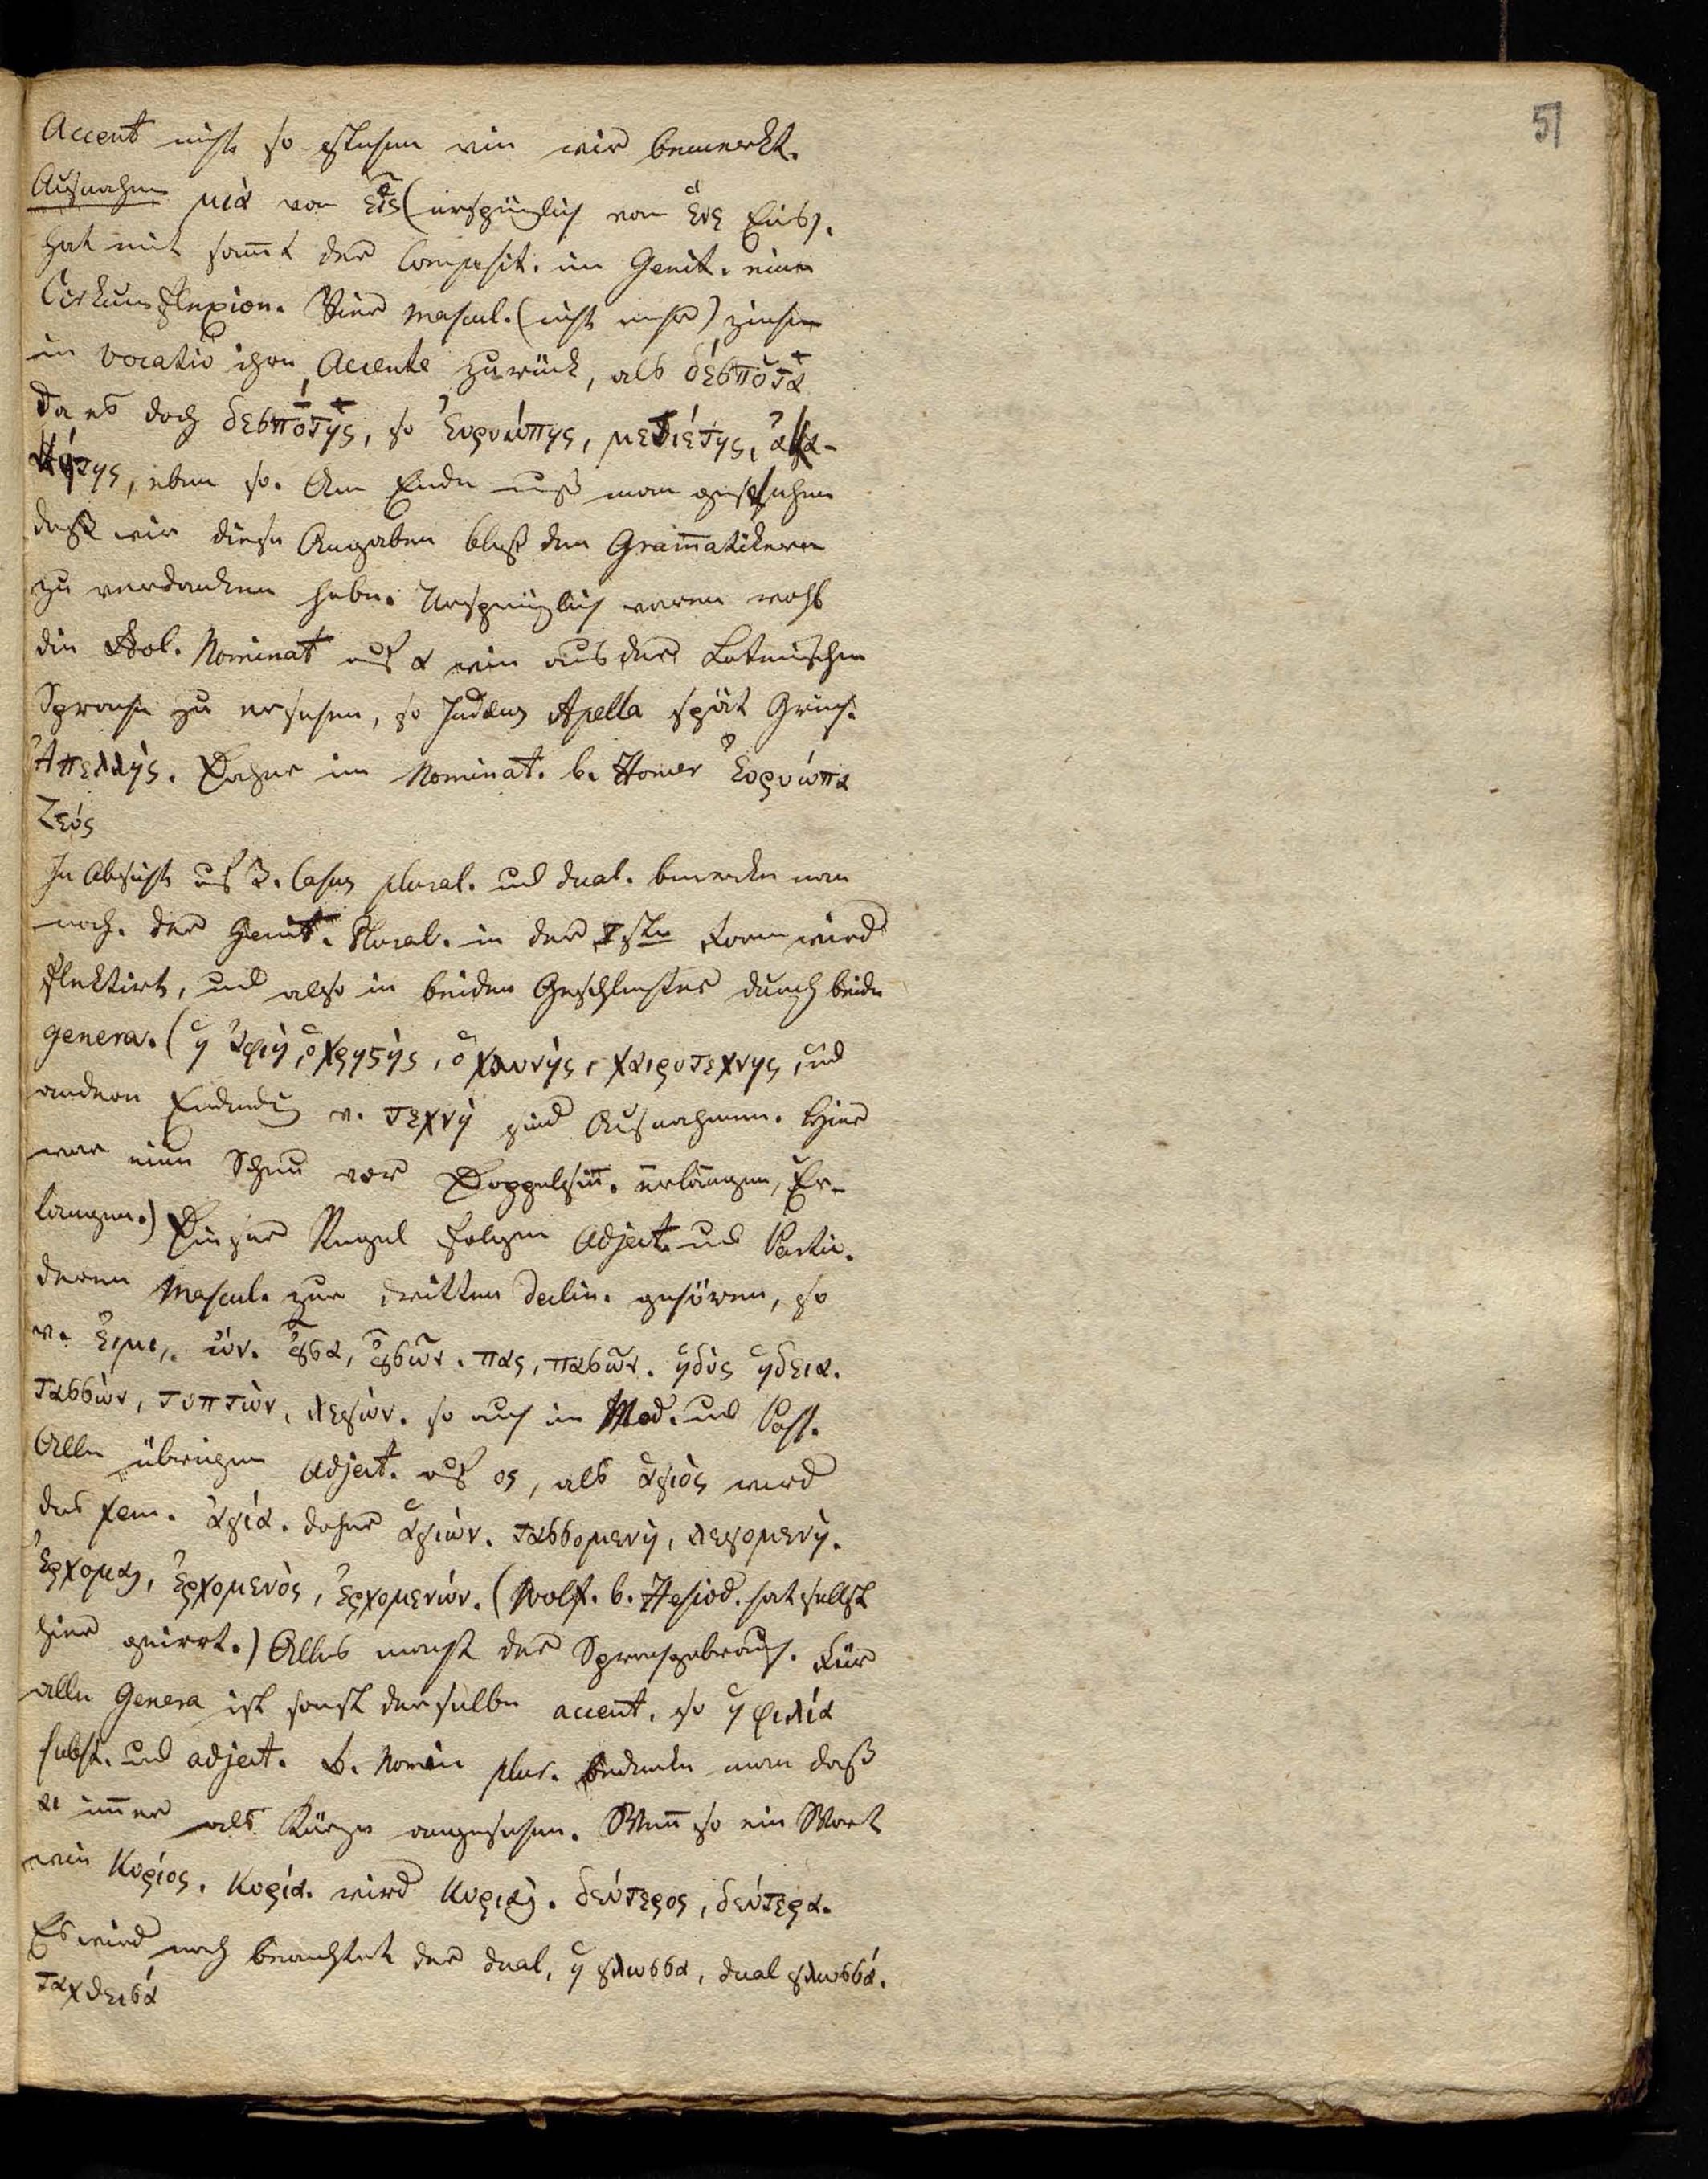 51
Accent nicht so stehen wie wir bemerkt.
Ausnahme μιά von εἷς (ursprünglich von ἕνς Eins).
hat mit sam̄t der Composit. im Genit. einen
Cirkumflexion. Vier Mascul. (nicht mehr) ziehen
im Vocativ ihren Accente zurück, als δέσποτα
da es doch δεσπότης, so Ἐυρυώπης, μετιέτης, ἀκα-
κήτης, eben so. Am Ende muß man gestehen
daß wir diese Angaben bloß den Gram̄atikern
zu verdanken haben. Ursprünglich waren wohl
die Aeol. Nominat auf α wie aus der Lateinischen
Sprache zu ersehen, so Judaeus Apella statt Griech.
Ἀπελλής. Daher im Nominat. b. Homer Ἐυρυώπα
Ζεύς
In Absicht auf 3. Casus plural. und dual. bemerke man
noch. der Genit. Plural. in der Isten Form wird
flektirt, und also in beiden Geschlechter durch beide
genera. (ἡ ἀφύη, ὁ χρηστής, ὁ χλουνής, χειροτεχνης, und
andern Endung v. τεχνή sind Ausnahmen. Hier
war eine Scheu vor Doppelsin̄. erlangen, Er-
langen.) Dieser Regel folgen Adject. und Partic.
deren Mascul. zur dritten Declin. gehören, so
v. ἐιμι, ὠν. οὖσα, οὐσῶν. πας, πασῶν. ἡδύς ἡδεια.
τασσών, τυπτών, λεγών. so auch im Med. und Pass.
Alle übrigen Adject. auf ος, als ἁγιός wird
das fem. ἁγιά. daher ἁγιών. τασσομενή, λεγομενή.
Ἐρχομαι, ἐρχομενός, ἐρχομενών. (Wolf. b. Hesiod. hat selbst
hier geirrt.) Alles macht der Sprachgebrauch. Für
alle Genera ist sonst derselbe accent, so ἡ φιλία
subst. und adject. B. Nomin plur. bedenke man daß
αι im̄er als Kürze angesehen. Wen̄ so ein Wort
wie Κυρίος. Κυρία. wird Κυριαι. δεύτερος, δεύτερα.
Es wird noch beachtet der dual, ἡ γλωσσα, dual γλωσσά.
ταχθεισά